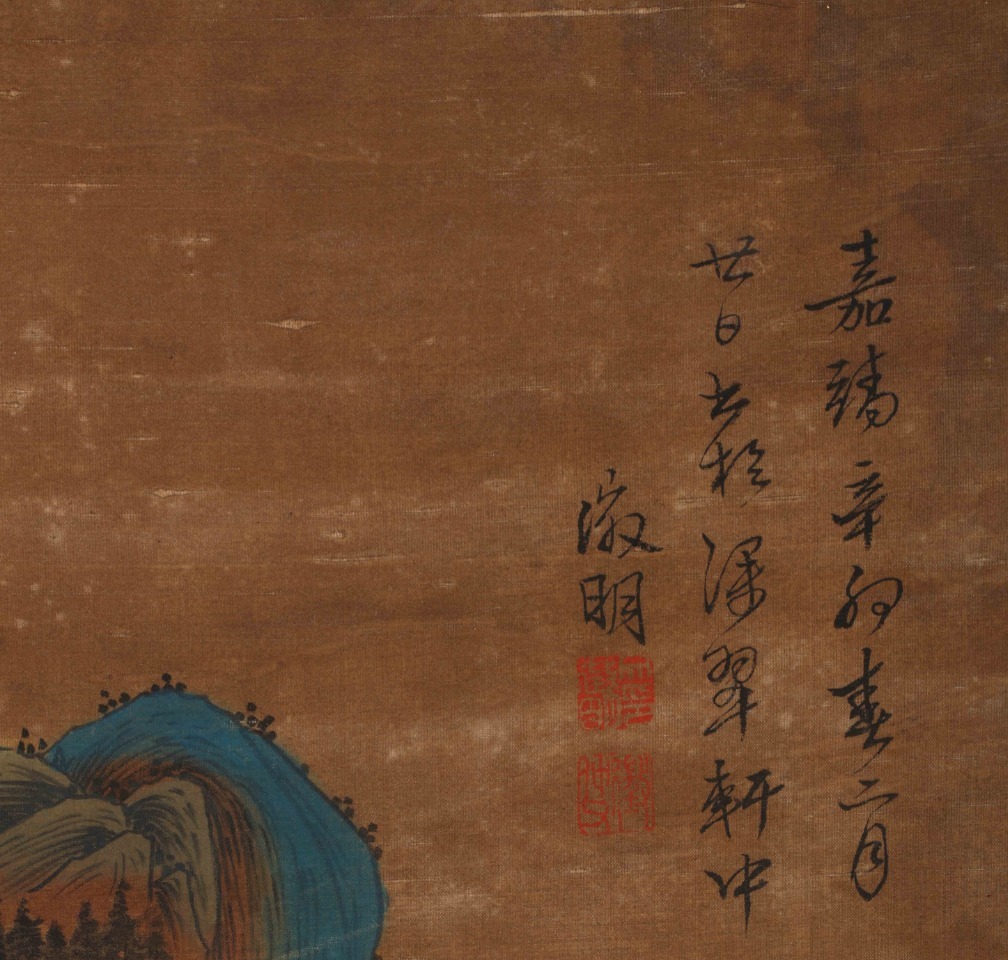 嘉靖辛卯春二月
廿日书於深翠軒中
徵明